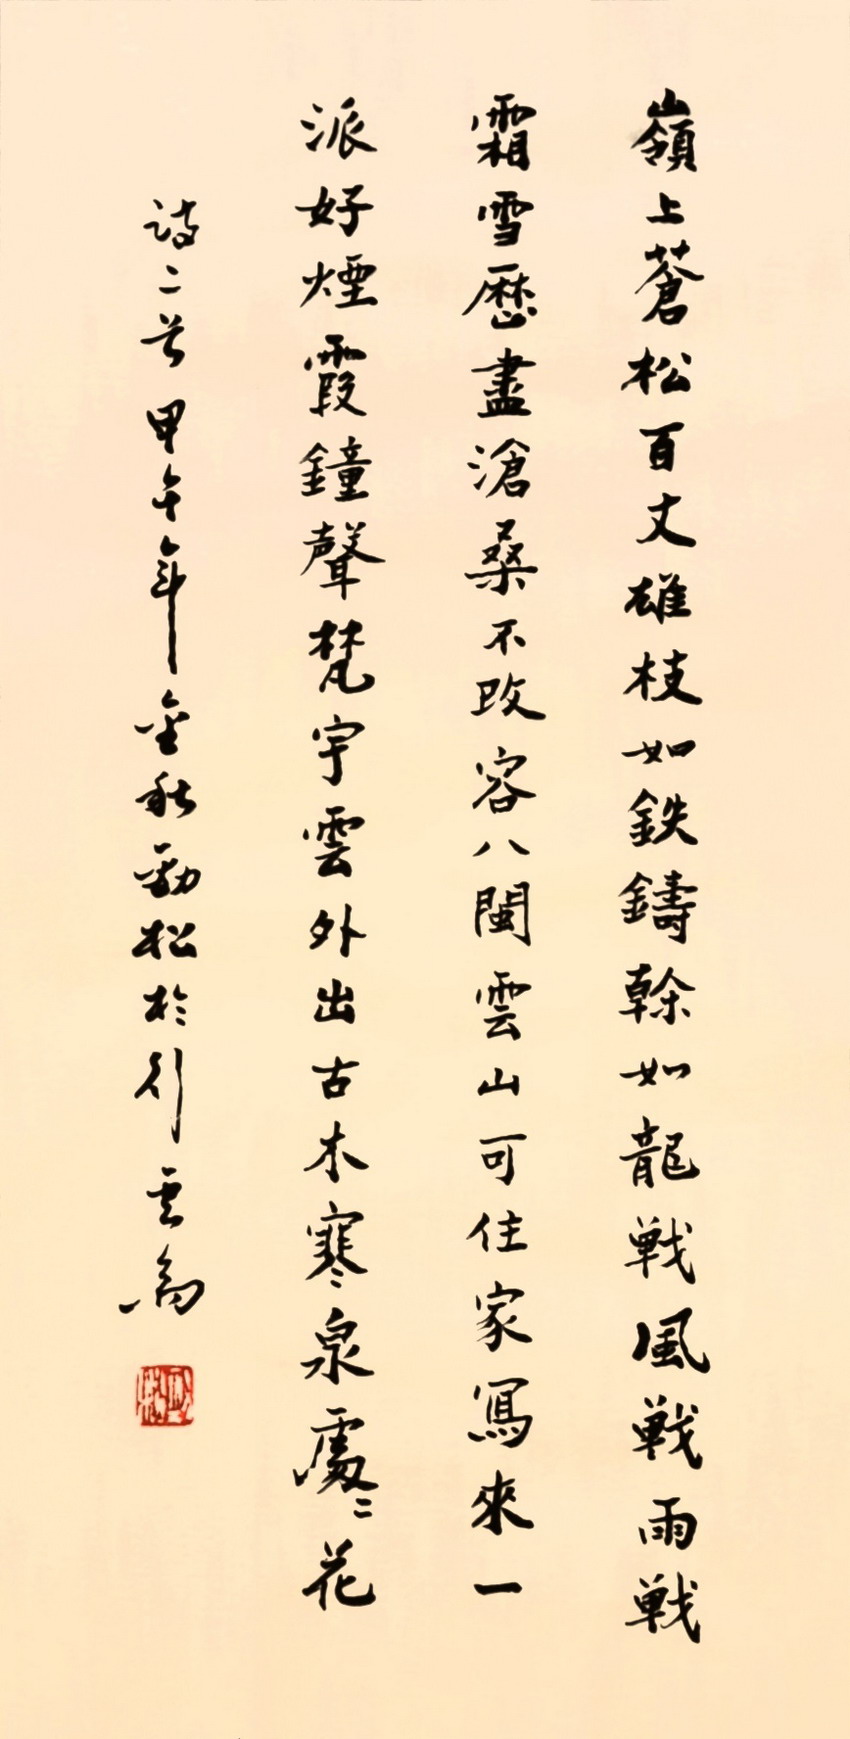 嶺上蒼松百丈雄枝如鉄鑄榦如龍戦風戦雨戦
霜雪歷盡滄桑不改容八閩雲山可住家寫來一
派好煙霞鐘聲梵宇雲外出古木寒泉處〻花
詩二首甲午年金秋勁松於行雲翁